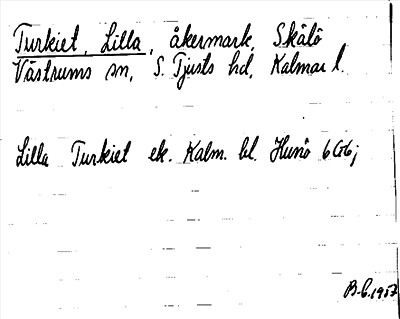 Turkiet, Lilla, åkermark, Skälö
Västrums sn, S. Tjusts hd, Kalmar l.
Lilla Turkiet ek. Kalm. bl. Hunö 6G6j
B.C. 1957